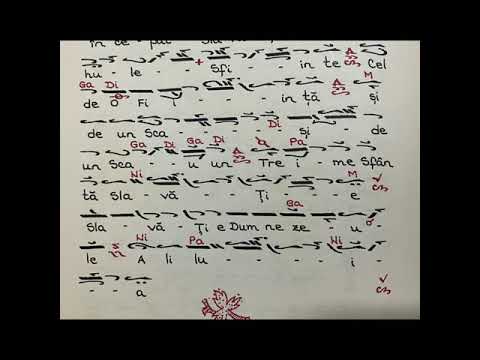 în ce - put sla
hu - le - - Sfi - - - în te Cel
Ga Di M
de O Fi i - - - - in ță și
Di
de un Sca - - - - - și - de
Ga Di Ga Di Pa
un Sca - - u un - Tre i - me Sfân
Ni M
tă Sla - vă - - Ți - - - ë
Ga
Sla - vă - Ți e Dum ne ze - u -
Ni Pa Ni
le A li lu - - - - - i -
- - ä